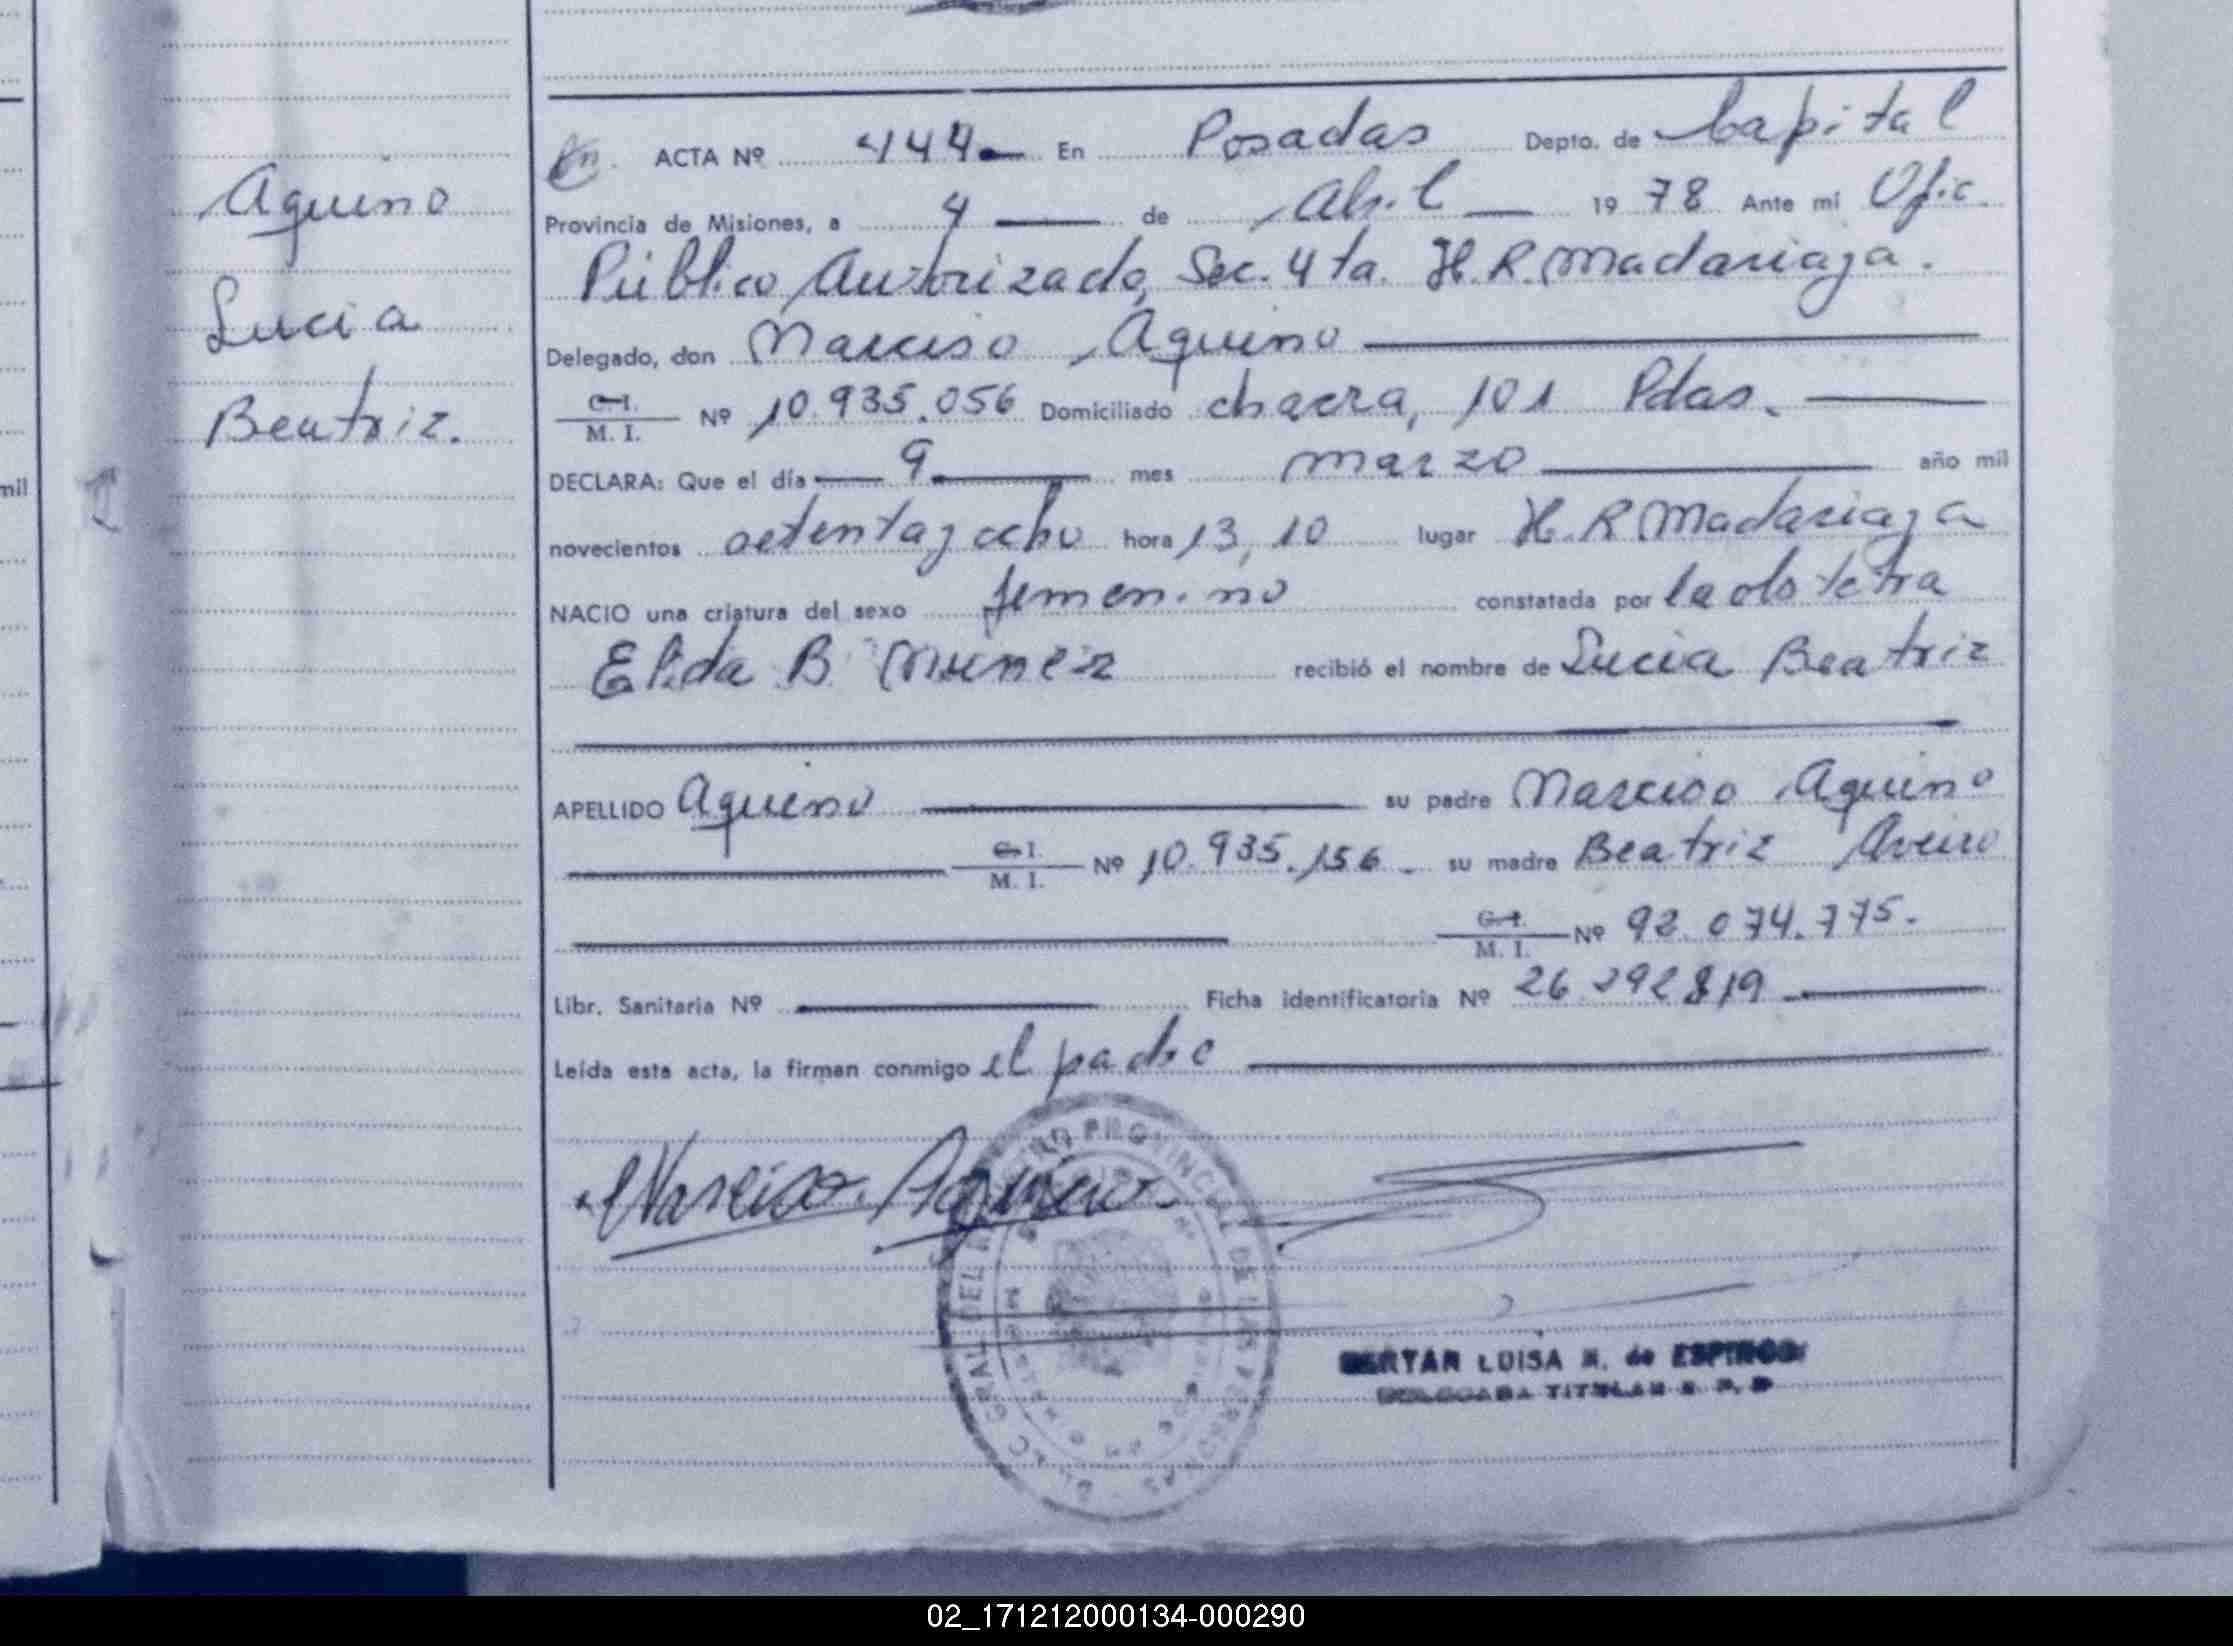 Aquino
Lucia
Beatriz.
ACTA Nº 444 En Posadas Depto. de Capital
Provincia de Misiones, a 4 de Abril 1978 Ante mi Ofic.
Público Autorizado, Sec. 4ta. H.R. Madariaga.
Delegado, don Narciso Aquino
C.I. M. I. Nº 10.935.056 Domiciliado chacra, 101 Pdas.
DECLARA: Que el día 9 mes marzo año mil
novecientos setenta y ocho hora 13,10 lugar H.R Madariaga
NACIO una criatura del sexo femenino constatada por la obstetra
Elida B. Nuñez recibió el nombre de Lucia Beatriz
APELLIDO Aquino su padre Narciso Aquino
C.I. M. I. Nº 10.935.156 su madre Beatriz Aveiro
C.I. M. I. Nº 92.074.775.
Libr. Sanitaria Nº Ficha identificatoria Nº 26 292819
Leída esta acta, la firman conmigo el padre
Narciso Aquino
GRAL DEL REGISTRO PROVINCIAL DE LAS PERSONAS
LUISA N. de ESPINOSA
DELEGADA TITULAR
mil
02_171212000134-000290